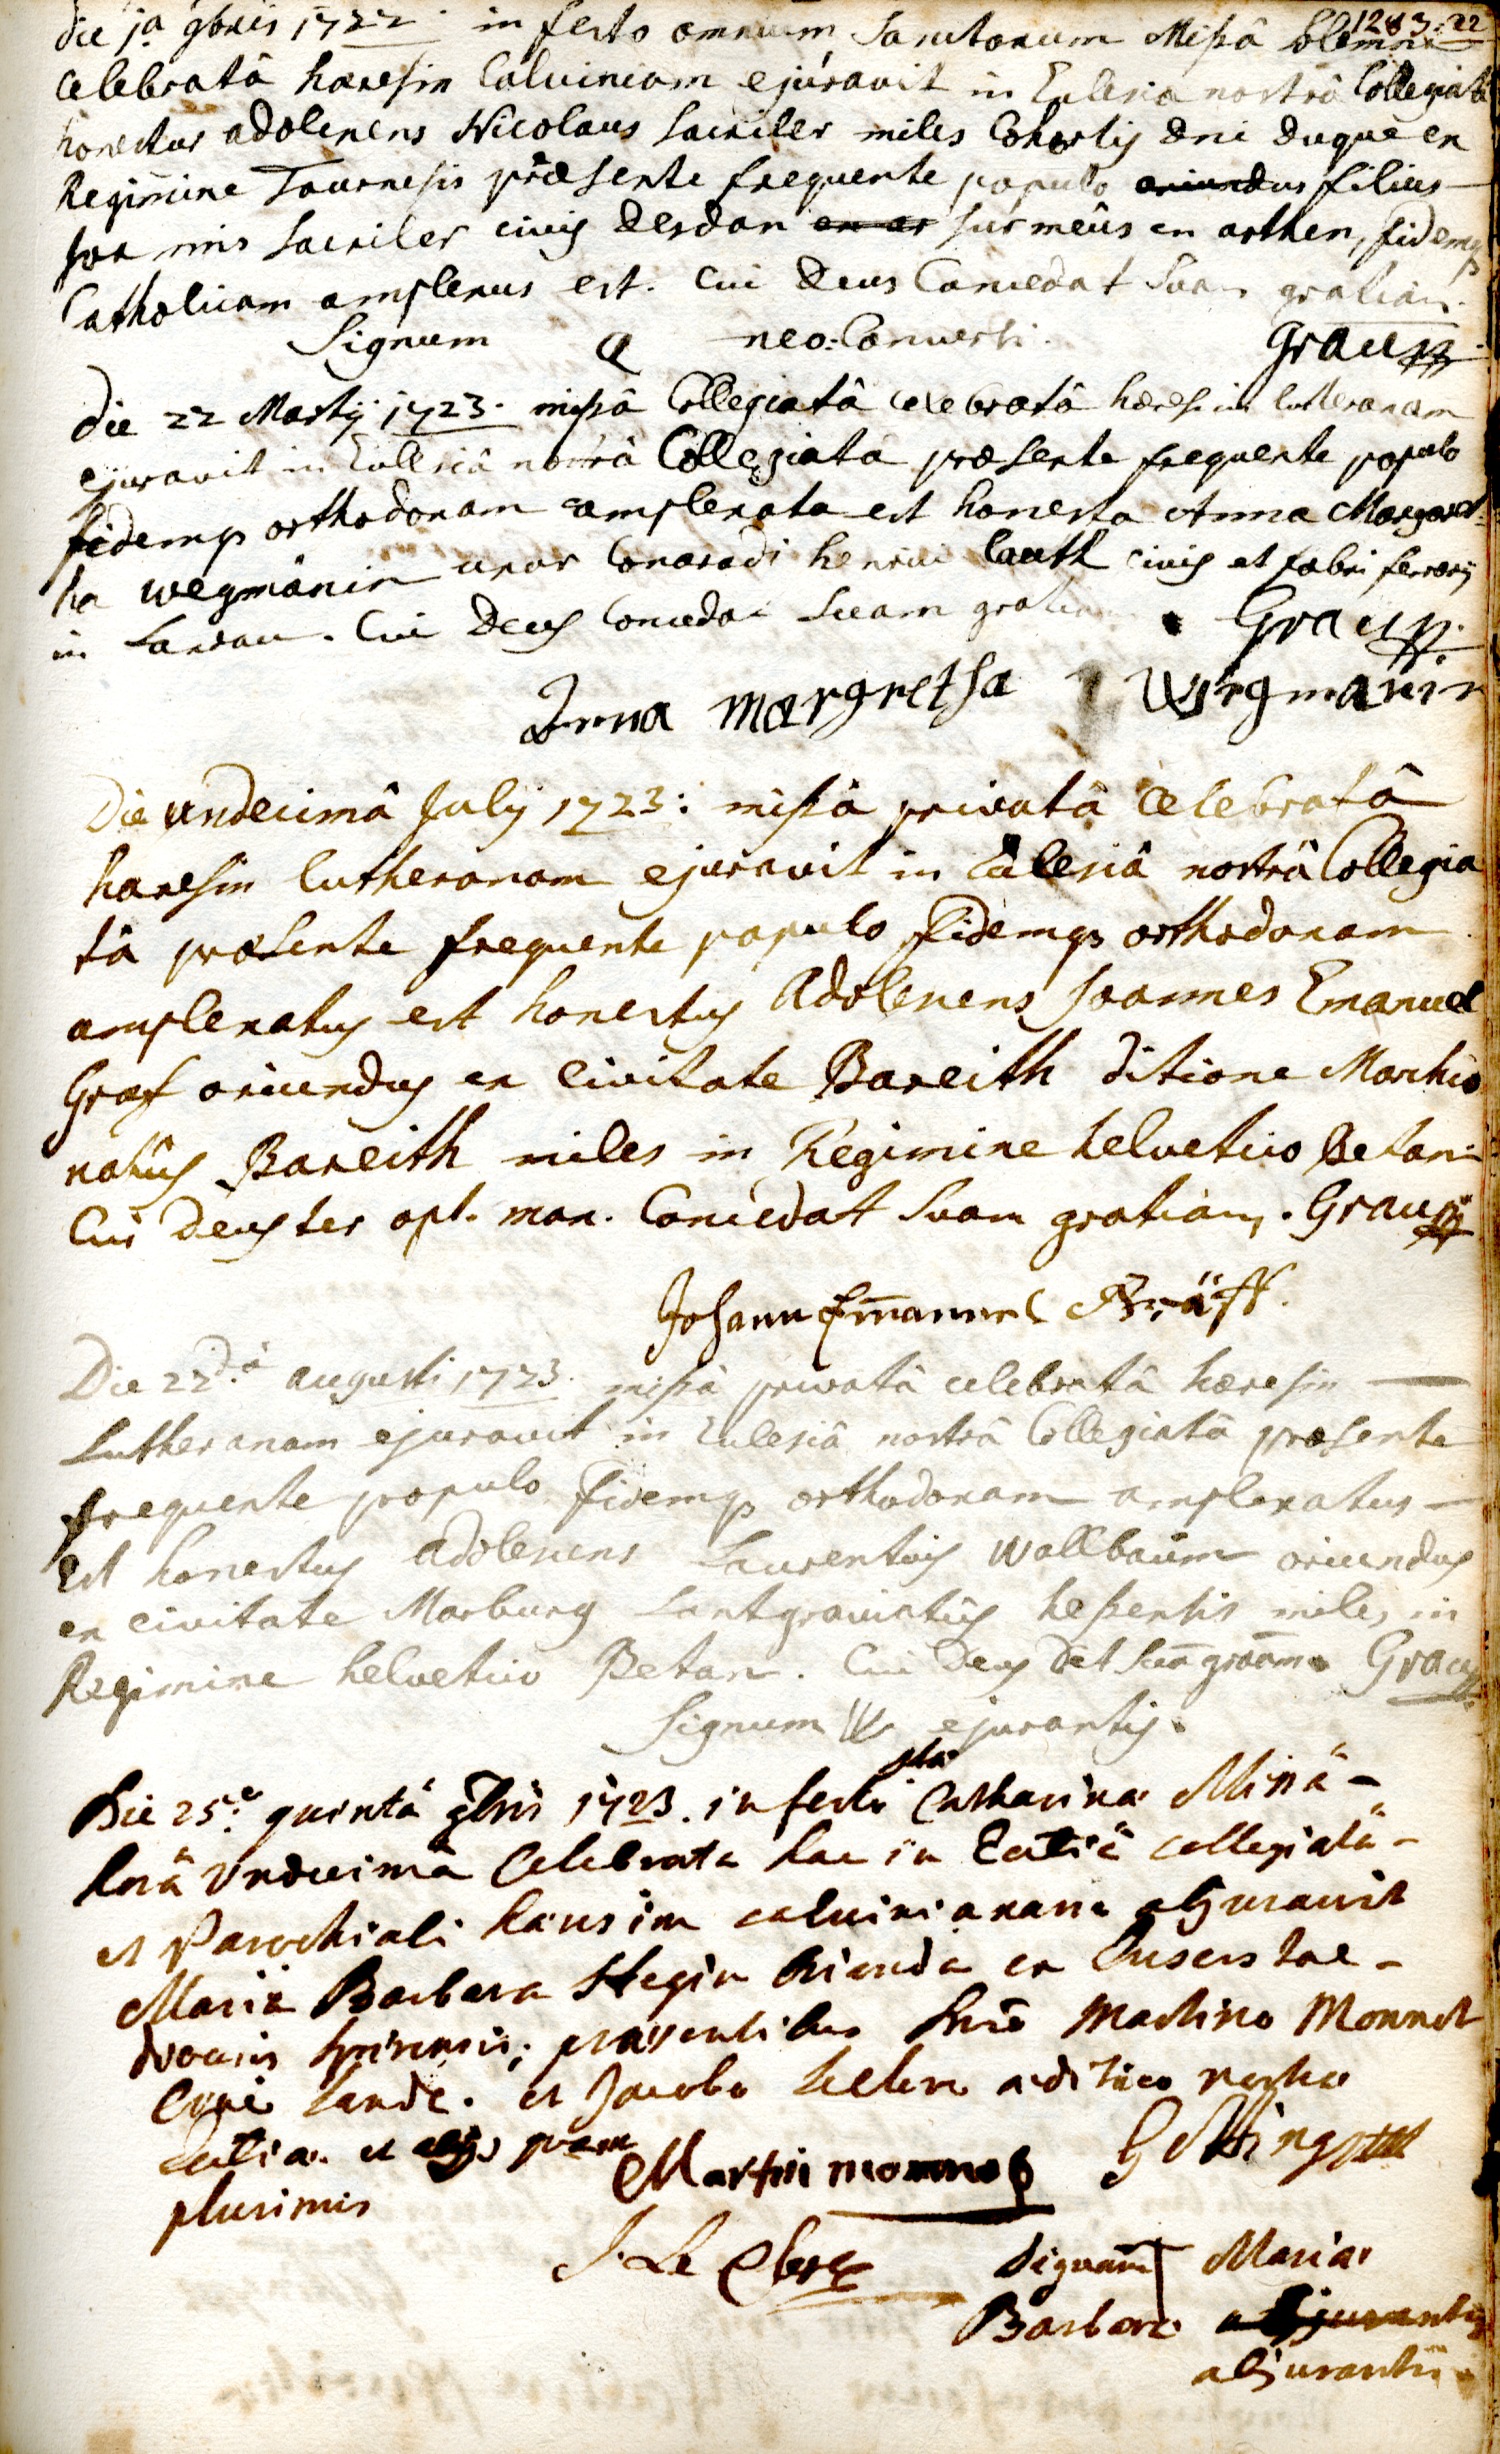 1283. 22
die 1a 9bris 1722. in festo omnium Sanctorum Missâ solemni
celebratâ haeresin Calvinianam ejuravit in Ecclesia nostrâ Collegiatâ
honestus adolescens Nicolaus miles Cohortis dni duque ex
Regimine Tournesis praesente frequente populo oriundus filius
Joannis civis en arthen, fidemq3
Catholicam amplexus est. Cui Deus Concedat Suam gratiam.
Signum neo-Conversi. Grau
die 22 Martij 1723. missâ Collegiatâ celebratâ haeresin lutheranam
ejuravit in Ecclesiâ nostrâ Collegiatâ praesente frequente populo
fidemq3 orthodoxam amplexata est honesta Anna Margaret-
ha wegmänin uxor Conaradi henrici lauth civis et fabri ferrarij
in Landau. Cui Deus Concedat Suam gratiam. Grau
Anna Margretha Wegmänin
Die undecimâ Julij 1723: missâ privatâ Celebratâ
haeresin lutheranam ejuravit in Ecclesiâ nostrâ Collegia
tâ praesente frequente populo fidemq3 orthodoxam
amplexatus est honestus Adolescens Joannes Emanuel
Graf oriundus ex Civitate Bareith ditione Marchio
natûs Bareith miles in Regimine helvetico Betan.
Cui Deus ter opt. max. Concedat Suam gratiam. Grau
Johann Emanuel Gräff.
Die 22dâ augusti 1723. missâ privatâ celebratâ haeresin
Lutheranam ejuravit in Ecclesiâ nostrâ Collegiatâ praesente
frequente populo fidemq3 orthodoxam amplexatus
est honestus adolescens Laurentius Wallbaum oriundus
ex civitate Marburg Lantgraviatûs hessensis miles in
Regimine helvetico Betan. Cui Deus det suā grām Grau
Signum W ejurantis.
Die 25e quintâ 9bris 1723. in festo stae Catharinae Missâ
horâ undecimâ Celebrata hac in Eccliâ collegiatâ
et Parochiali haeresim calvinianam abjuravit
Maria Barbara Stegin Orianda ex
praesentibus Martino Monnet
cive Lande. et Jacobo aedituo nostrae
Eccliae et alijs quam
plurimis
Martin monnet
J. Le Clerc
Signum Mariae
Barbarae abjurantis
abjurantis